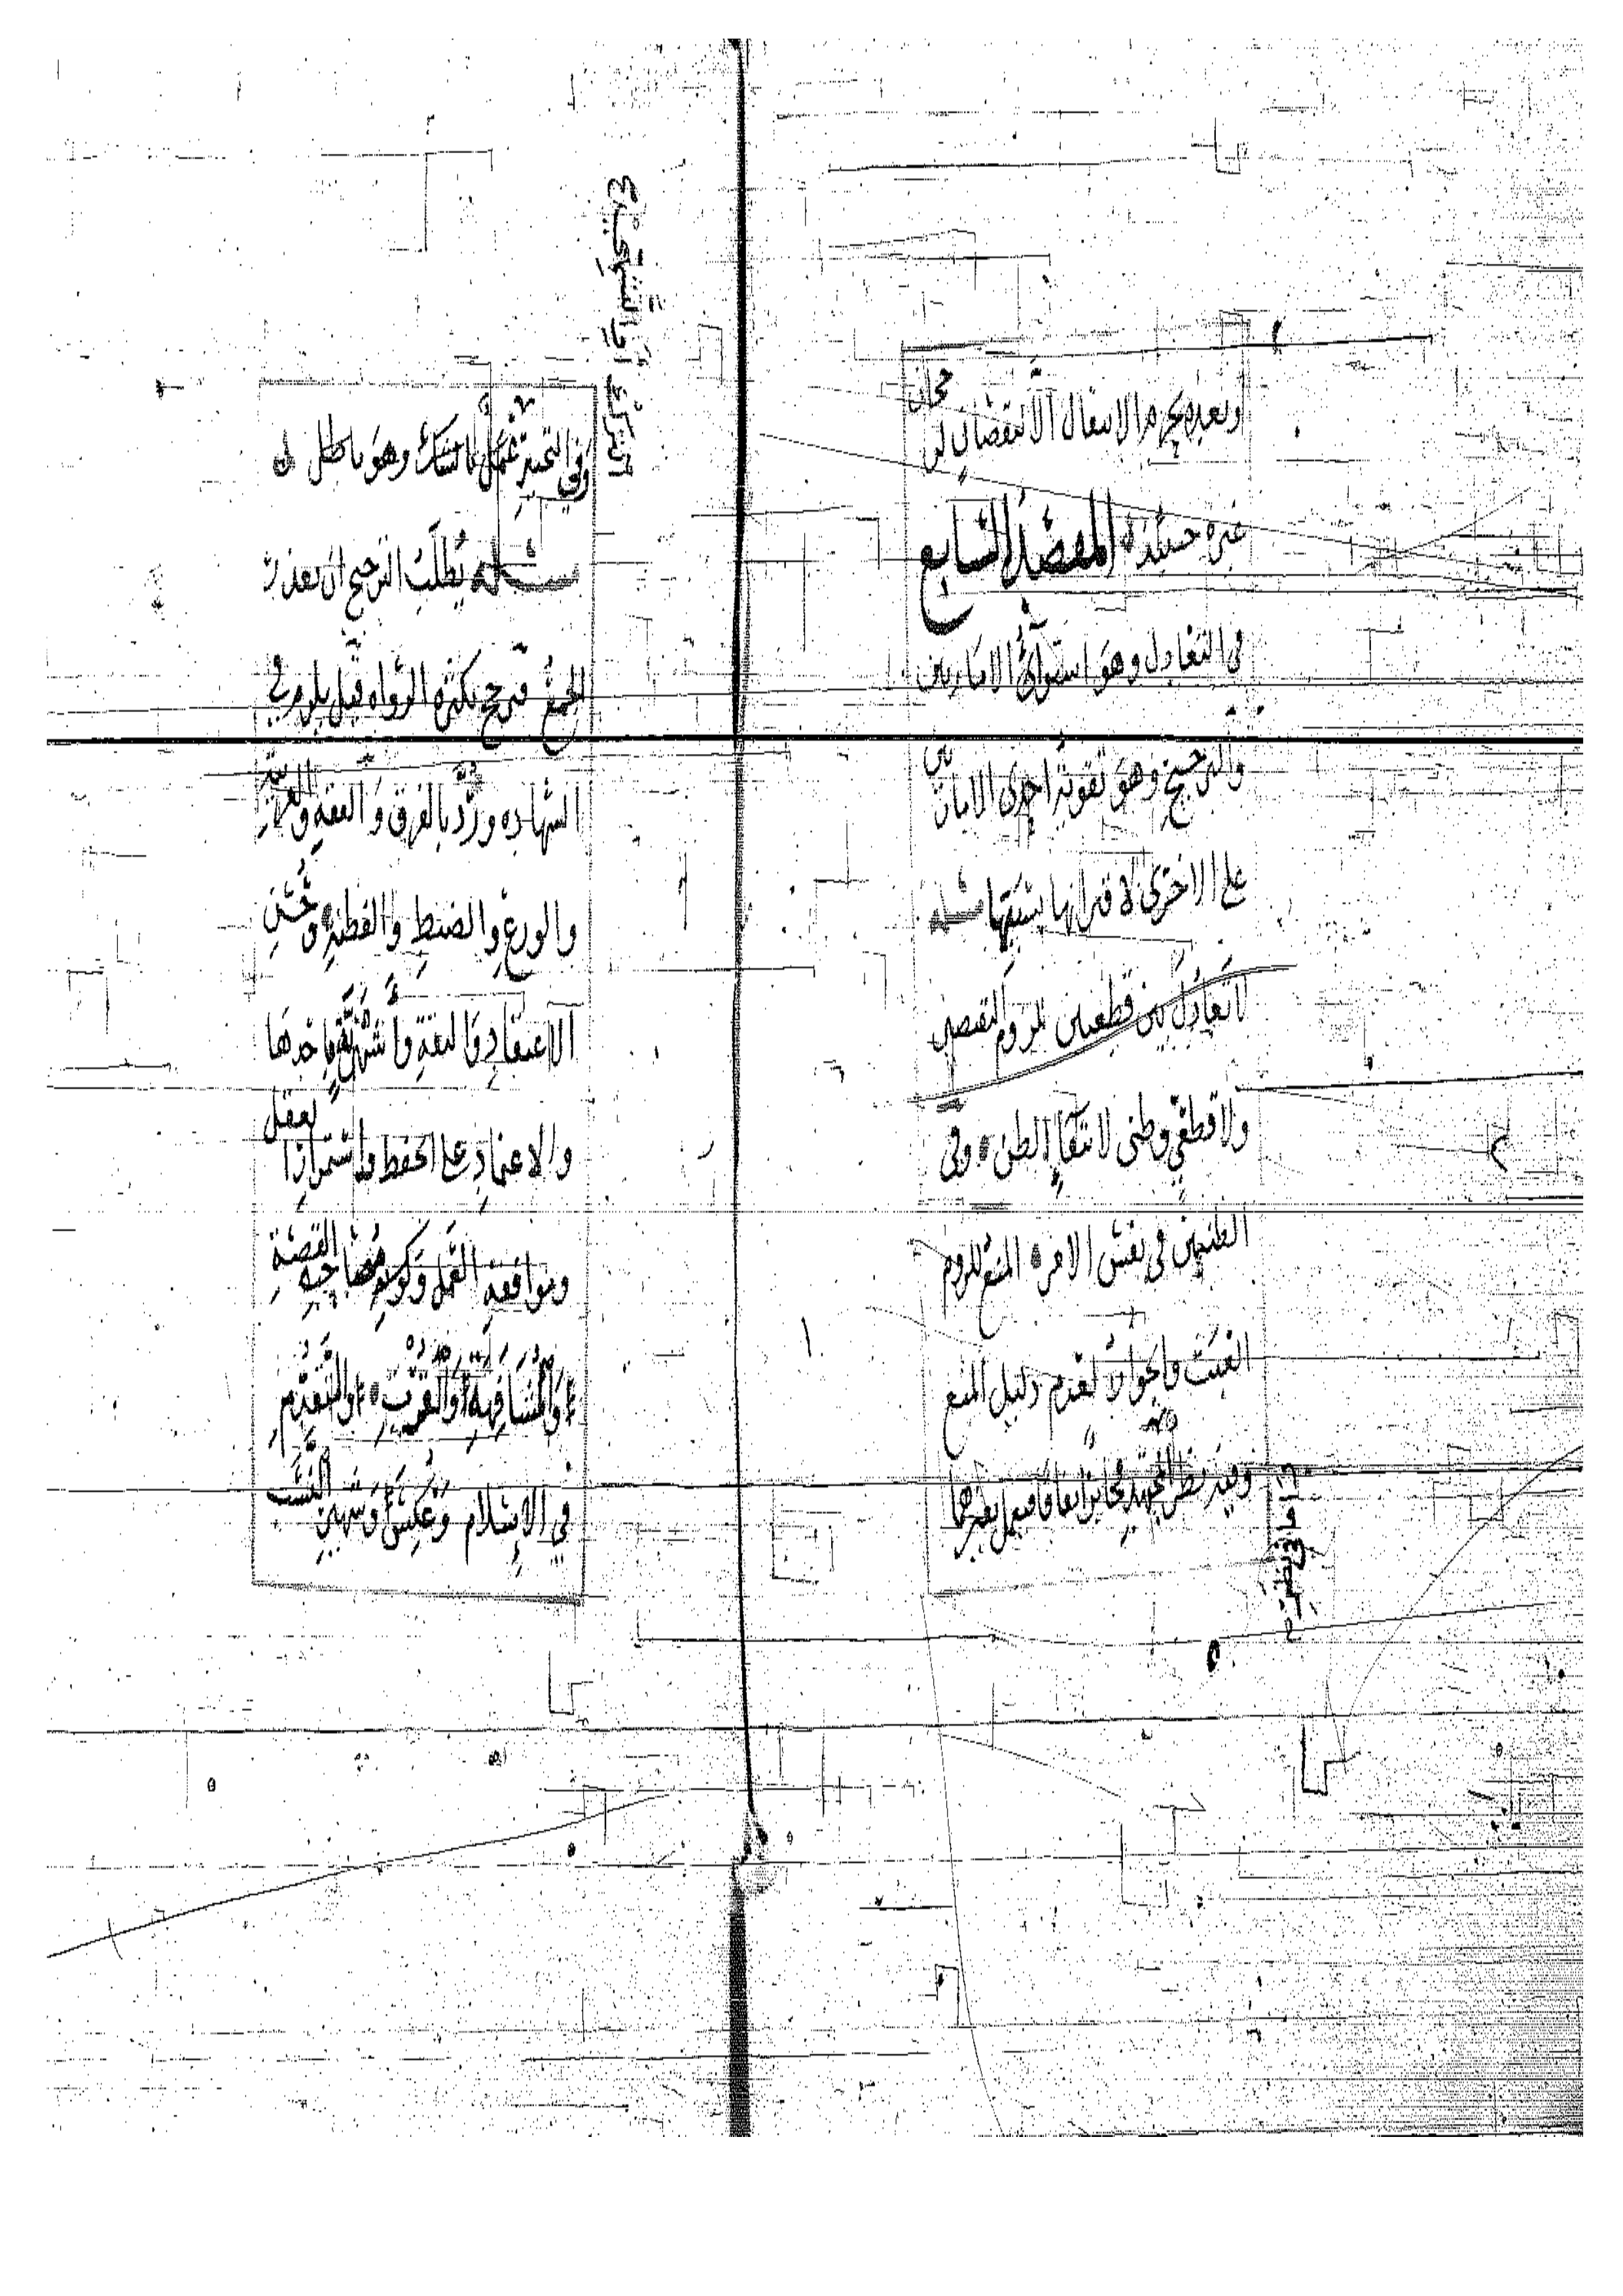 وبعده يحرم الانتقال الا لنقصان او رجحان
غيره حينئذ المقصد السابع
في التعادل وهو استواء الامارتين
والترجيح وهو تقوية احدى الامارتين
على الاخرى لاقترانها بسببها مسئله
لا تعادل بين قطعيين للزوم النقيضين
ولا قطعي وظني لانتفاء الظن وفي
الظنيين في نفس الامر المنع للزوم
العبث والجواز لعدم دليل المنع
وعند نظر المجتهد جائز اتفاقا فيعمل بغيرهما
واما في نظر
وفي التخيير عمل بالشك وهو باطل
مسئله يطلب الترجيح ان تعذر
الجمع فيرجح بكثره الرواه قيل يلزم في
الشهاده ورد بالفرق والفقه والعربية
والورع والضبط والفطنة وحسن
الاعتقاد والثقة وأشهرية احدها
والاعتماد على الحفظ واستمرار العقل
وموافقة العمل وكونه صاحب القصة
والمشافهة والقرب والتقدم
في الإسلام وعكسه وشهير النسب
الترك أو التخيير